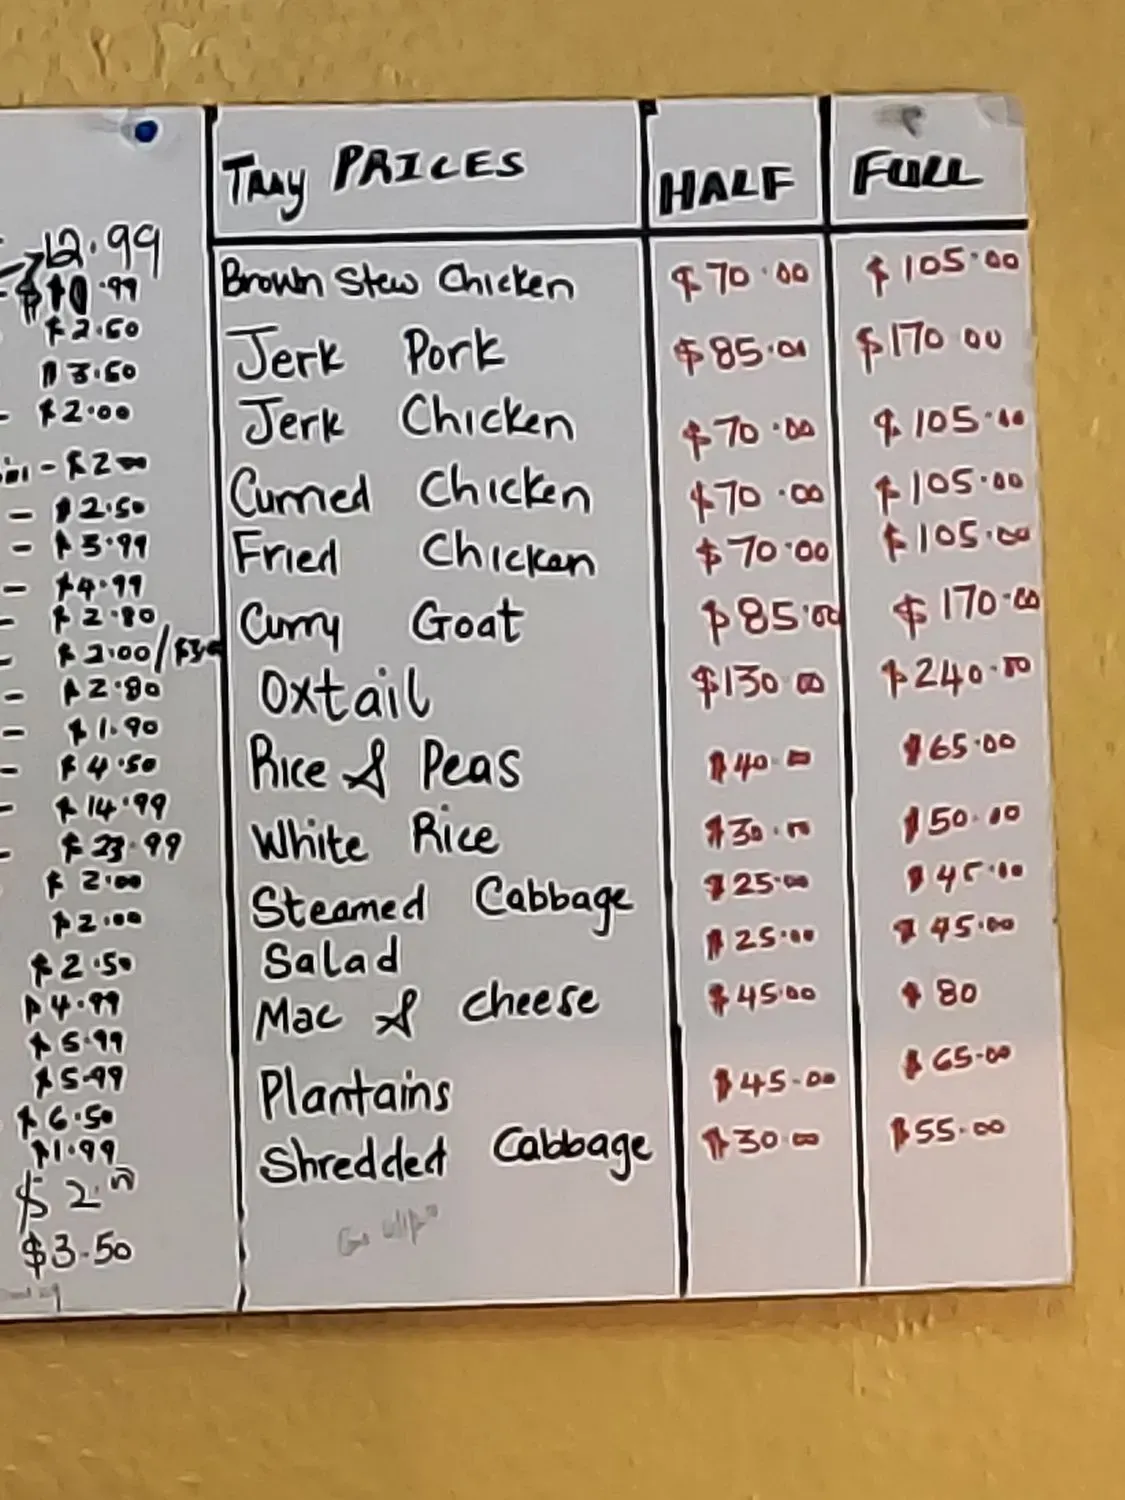 TRAY PRICES HALF FULL
12.99
$10.99
$2.50
$3.50
- $2.00
- $2.00
- $2.50
- $3.99
- $4.99
- $2.80
- $2.00/
- $2.80
- $1.90
- $4.50
- $14.99
- $23.99
$2.00
$2.00
$2.50
$4.99
$5.99
$5.99
$6.50
$1.99
$2.00
$3.50
Brown Stew Chicken $70.00 $105.00
Jerk Pork $85.00 $170.00
Jerk Chicken $70.00 $105.00
Curried Chicken $70.00 $105.00
Fried Chicken $70.00 $105.00
Curry Goat $85.00 $170.00
Oxtail $130.00 $240.00
Rice & Peas $40.00 $65.00
White Rice $30.00 $50.00
Steamed Cabbage $25.00 $45.00
Salad $25.00 $45.00
Mac & cheese $45.00 $80
Plantains $45.00 $65.00
Shredded Cabbage $30.00 $55.00